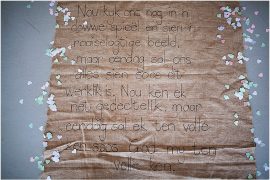 "Nou kyk ons nog in 'n
dowwe spieël en sien 'n
raaiselagtige beeld,
maar eendag sal ons
alles sien soos dit
werklik is. Nou ken ek
net gedeeltelik, maar
eendag sal ek ten volle
ken soos God my ten
volle ken."